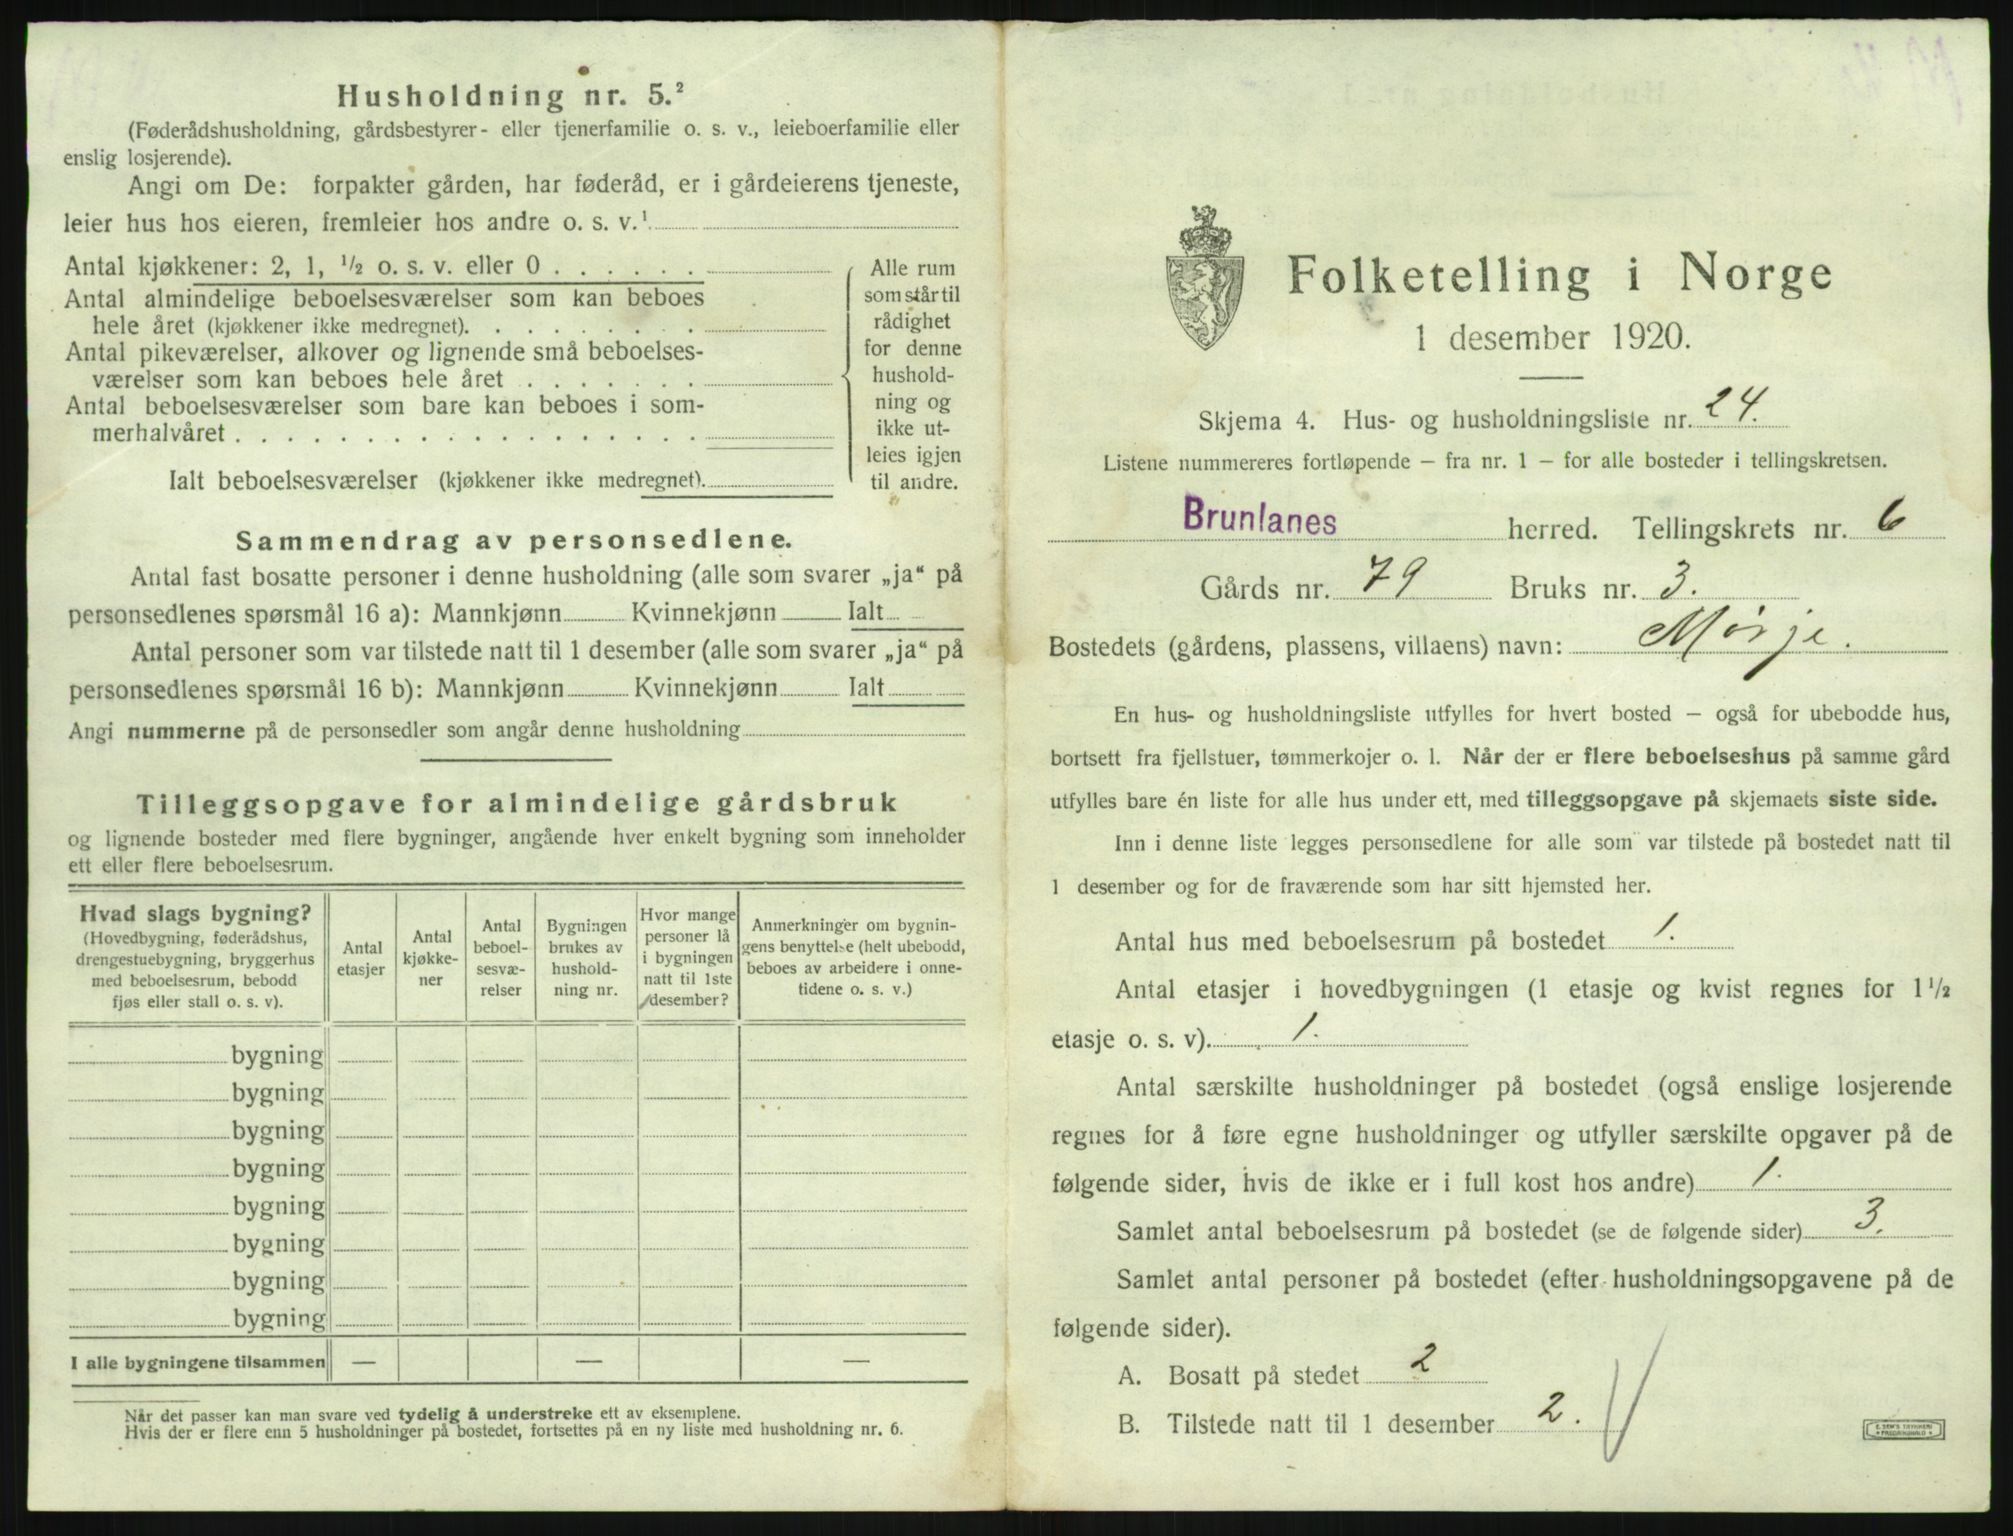 Husholdning nr. 5.²
(Føderådshusholdning, gårdsbestyrer- eller tjenerfamilie o. s. v., leieboerfamilie eller
enslig losjerende).
Angi om De: forpakter gården, har føderåd, er i gårdeierens tjeneste,
leier hus hos eieren, fremleier hos andre o. s. v.¹
Antal kjøkkener: 2, 1, ¹/₂ o. s. v. eller 0 . . . . . .
Antal almindelige beboelsesværelser som kan beboes
hele året (kjøkkener ikke medregnet). . . . . . . . .
Antal pikeværelser, alkover og lignende små beboelses-
værelser som kan beboes hele året . . . . . . .
Antal beboelsesværelser som bare kan beboes i som-
merhalvåret . . . . . . . . . . . . . . . . . .
Ialt beboelsesværelser (kjøkkener ikke medregnet).
Alle rum
som står til
rådighet
for denne
hushold-
ning og
ikke ut-
leies igjen
til andre.
Sammendrag av personsedlene.
Antal fast bosatte personer i denne husholdning (alle som svarer „ja“ på
personsedlenes spørsmål 16 a): Mannkjønn Kvinnekjønn Ialt
Antal personer som var tilstede natt til 1 desember (alle som svarer „ja“ på
personsedlenes spørsmål 16 b): Mannkjønn Kvinnekjønn Ialt
Angi nummerne på de personsedler som angår denne husholdning
Tilleggsopgave for almindelige gårdsbruk
og lignende bosteder med flere bygninger, angående hver enkelt bygning som inneholder
ett eller flere beboelsesrum.
Hvad slags bygning?
(Hovedbygning, føderådshus,
drengestuebygning, bryggerhus
med beboelsesrum, bebodd
fjøs eller stall o. s. v).
Antal
etasjer
Antal
kjøkke-
ner
Antal
beboel-
sesvæ-
relser
Bygningen
brukes av
hushold-
ning nr.
Hvor mange
personer lå
i bygningen
natt til 1ste
desember?
Anmerkninger om bygnin-
gens benyttelse (helt ubebodd,
beboes av arbeidere i onne-
tidene o. s. v.)
bygning
bygning
bygning
bygning
bygning
bygning
bygning
bygning
I alle bygningene tilsammen — — —
Når det passer kan man svare ved tydelig å understreke ett av eksemplene.
Hvis der er flere enn 5 husholdninger på bostedet, fortsettes på en ny liste med husholdning nr. 6.
Folketelling i Norge
1 desember 1920.
Skjema 4. Hus- og husholdningsliste nr. 24.
Listene nummereres fortløpende – fra nr. 1 – for alle bosteder i tellingskretsen.
Brunlanes herred. Tellingskrets nr. 6
Gårds nr. 79 Bruks nr. 3.
Bostedets (gårdens, plassens, villaens) navn: Mørje.
En hus- og husholdningsliste utfylles for hvert bosted – også for ubebodde hus,
bortsett fra fjellstuer, tømmerkojer o. l. Når der er flere beboelseshus på samme gård
utfylles bare én liste for alle hus under ett, med tilleggsopgave på skjemaets siste side.
Inn i denne liste legges personsedlene for alle som var tilstede på bostedet natt til
1 desember og for de fraværende som har sitt hjemsted her.
Antal hus med beboelsesrum på bostedet 1.
Antal etasjer i hovedbygningen (1 etasje og kvist regnes for 1 ¹/₂
etasje o. s. v). 1.
Antal særskilte husholdninger på bostedet (også enslige losjerende
regnes for å føre egne husholdninger og utfyller særskilte opgaver på de
følgende sider, hvis de ikke er i full kost hos andre) 1.
Samlet antal beboelsesrum på bostedet (se de følgende sider) 3.
Samlet antal personer på bostedet (efter husholdningsopgavene på de
følgende sider).
A. Bosatt på stedet 2
B. Tilstede natt til 1 desember 2.